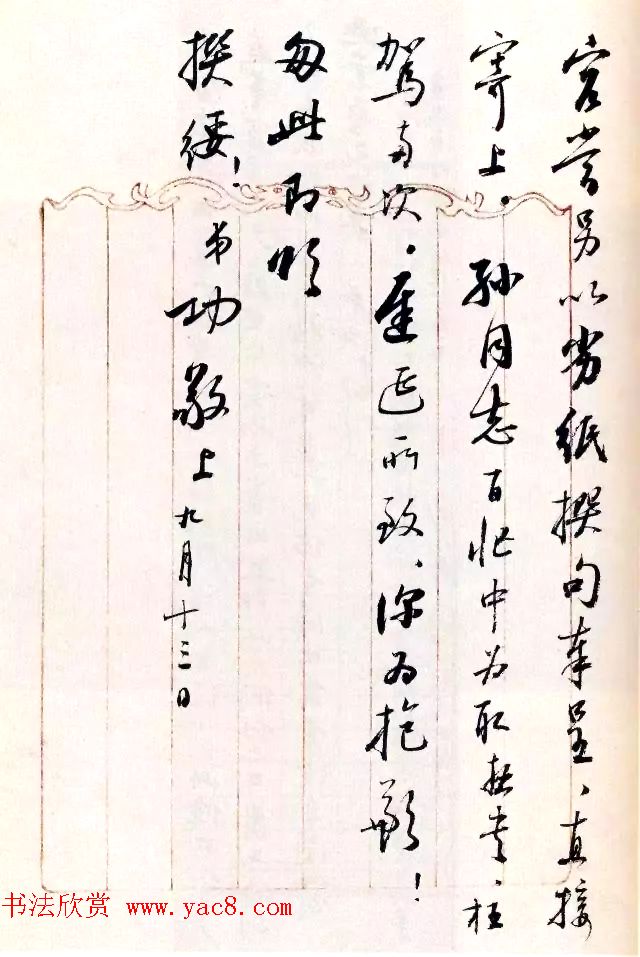 容当另以劣纸撰句奉呈、直接
寄上。孙同志百忙中为取拙书、枉
驾多次。迟延所致、深为抱歉！
匆此即颂
撰绥！
弟功敬上 九月十三日
书法欣赏 www.yac8.com